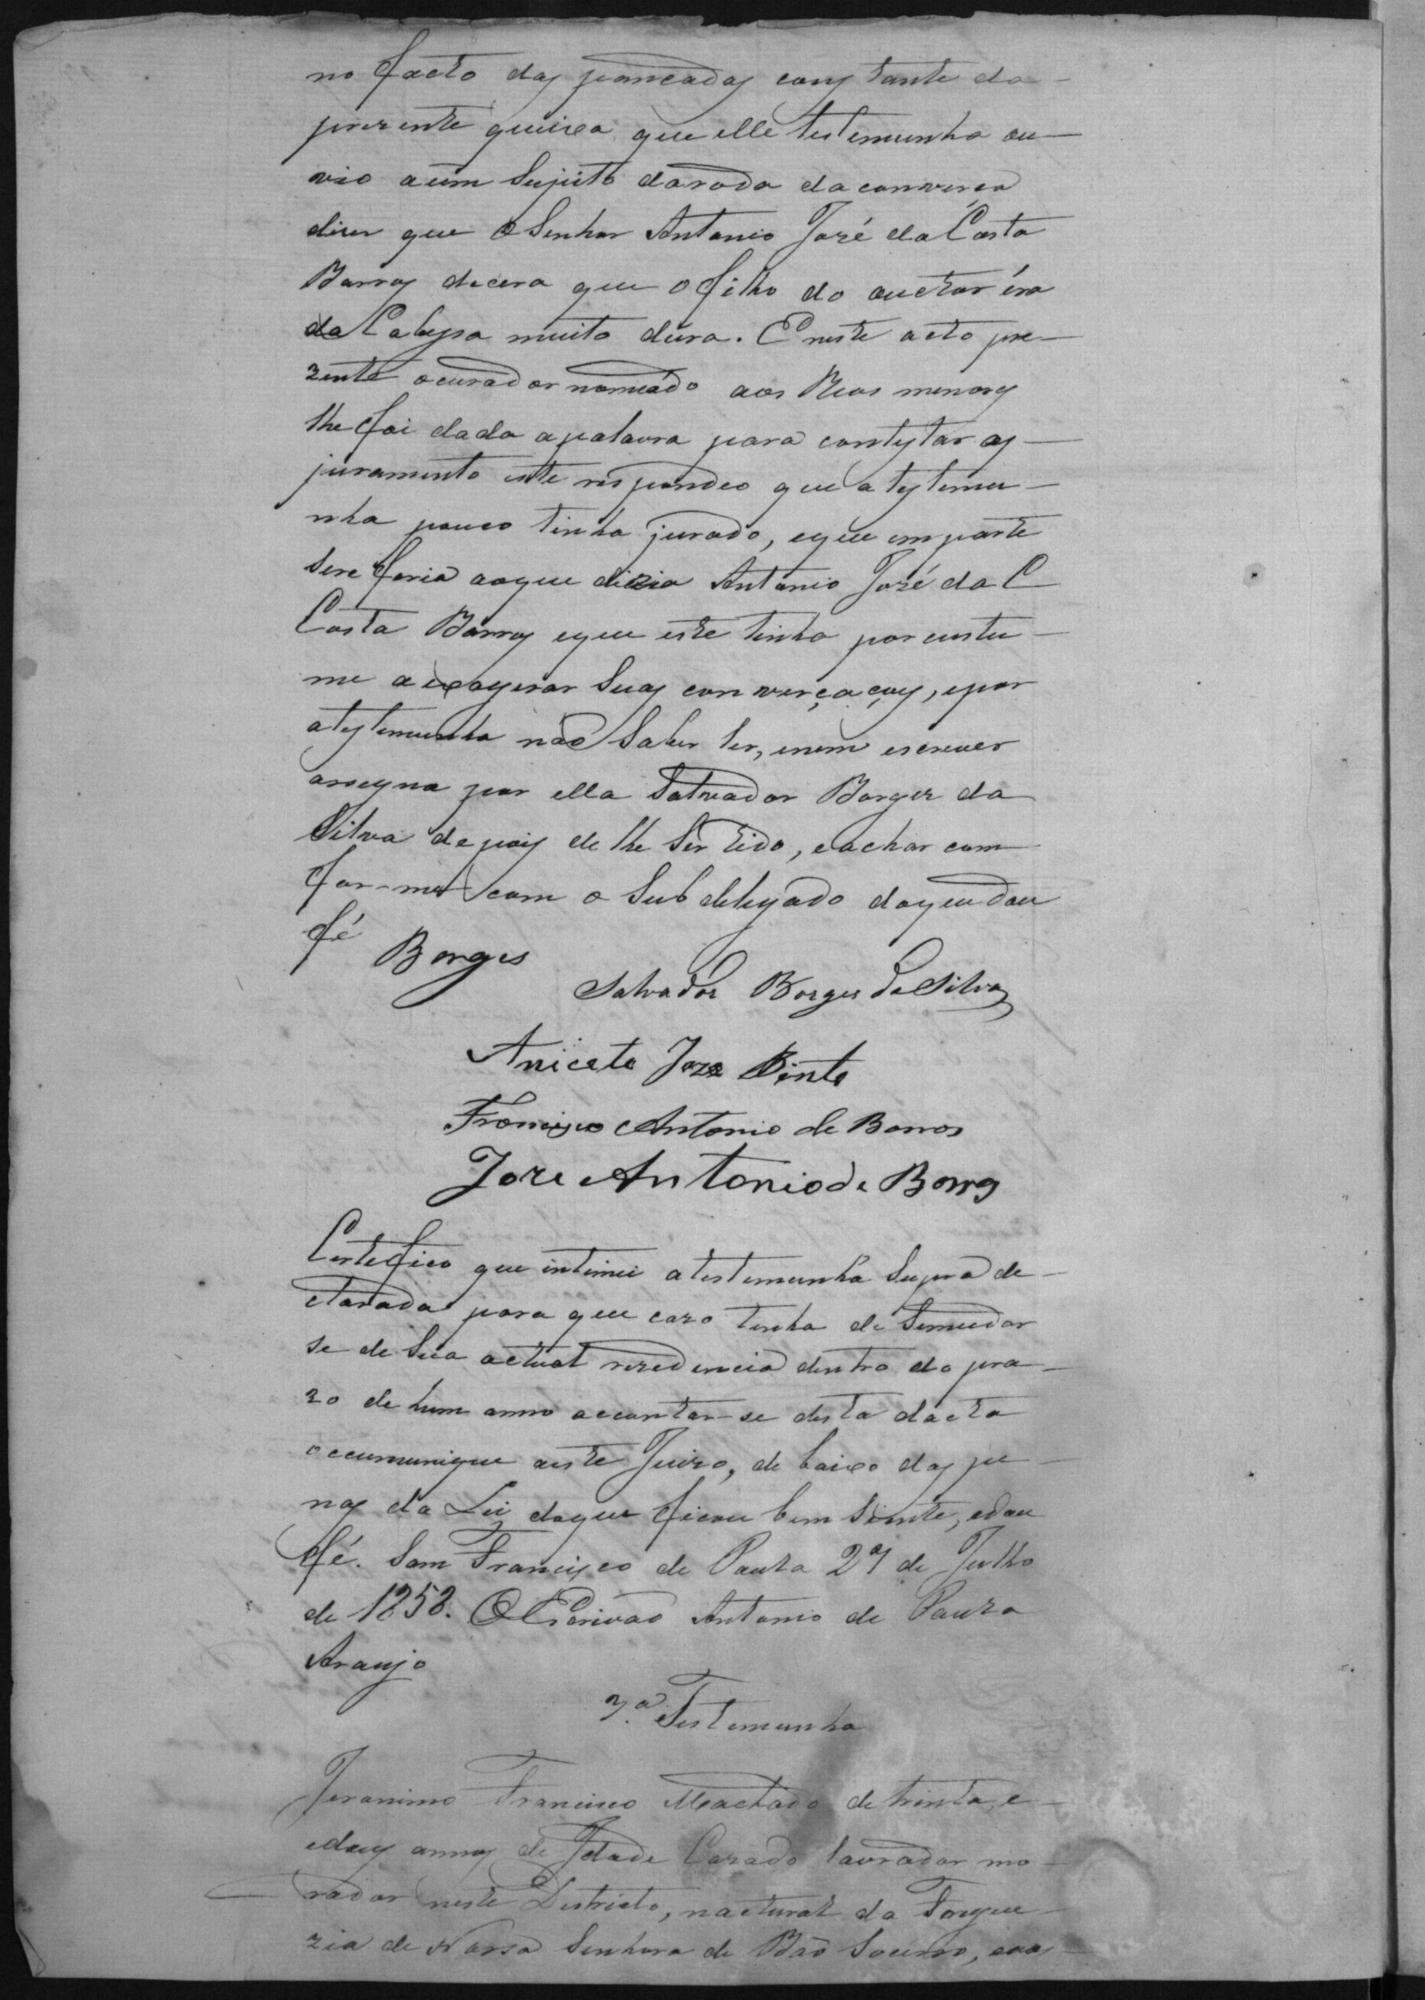 no facto das pancadas constante da
prezente queixa que elle testemunha ou-
vio a um Sujeito da roda da converça
dizer que o Senhor Antonio José da Costa
Barros dicera que o filho do auctor éra
da Cabeça muito dura. E neste acto pre-
zente o curador nomeádo aos Reos menores
lhe foi dada a palavra para contestar as
juramento este respondeo que a testemu-
nha pouco tinha jurado, e que em parte
se re feria ao que dizia Antonio José da C
Costa Barros e que este tinha por custu-
me a exagerar Suas converçaçoes, e por
a testemunha não Saber ler, e nem escrever
assegna por ella Salvador Borges da
Silva depois de lhe Ser lido, e achar com
for-me com o Subdelegado do que dou
fé
Borges
Salvador Borges da Silva
Aniceto Joze Bento
Francisco Antonio de Barros
Joze Antonio de Barros
Certefico que intimei a testemunha Supra de-
clarada para que cazo tenha de Semudar
se de Sua actual rezedencia dentro do pra-
zo de hum anno a contar-se desta dacta
o comunique a este Juizo, de baixo das pe-
nas da Lei do que ficou bem Siente, e dou
fé. Sam Francisco de Paula 27 de Julho
de 1858. O Escrivão Antonio de Paula
Araujo
3.ª Testemunha
Jeronimo Francisco Machado de trinta e
e dois annos de Idade Cazado lavrador mo-
rador neste Districto, nactural da Fregue-
zia de Nossa Senhora de Bão Socorro,